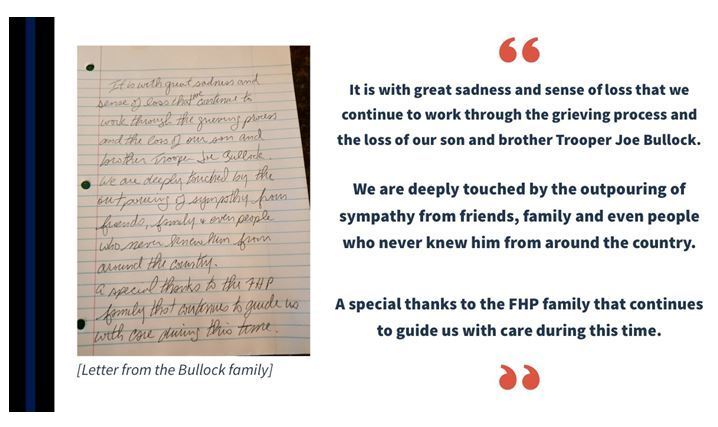 It is with great sadness and
sense of loss that we continue to
work through the grieving process
and the loss of our son and
brother Trooper Joe Bullock.
We are deeply touched by the
outpouring of sympathy from
friends, family & even people
who never knew him from
around the country.
A special thanks to the FHP
family that continues to guide us
with care during this time.
[Letter from the Bullock family]
It is with great sadness and sense of loss that we
continue to work through the grieving process and
the loss of our son and brother Trooper Joe Bullock.
We are deeply touched by the outpouring of
sympathy from friends, family and even people
who never knew him from around the country.
A special thanks to the FHP family that continues
to guide us with care during this time.